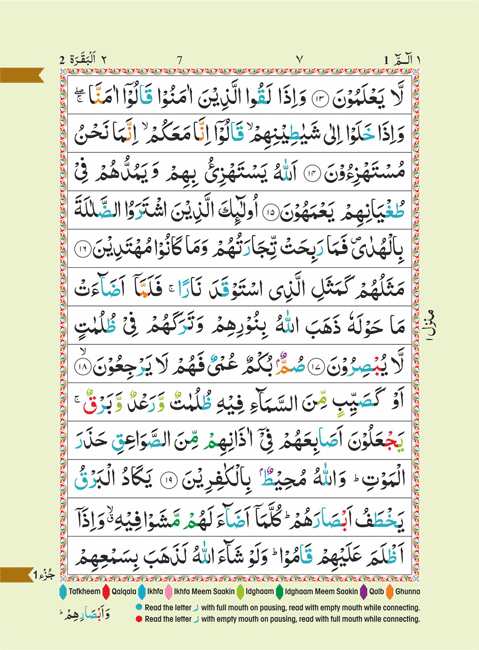 ١ الٓمّٓ 1 ٧ 7 ٢ اَلْبَقَرَة 2
لَّا يَعْلَمُوْنَ ﴿١٣﴾ وَاِذَا لَقُوا الَّذِيْنَ اٰمَنُوْا قَالُوْۤا اٰمَنَّا ۖۚ
وَاِذَا خَلَوْا اِلٰى شَيٰطِيْنِهِمْ ۙ قَالُوْۤا اِنَّا مَعَكُمْ ۙ اِنَّمَا نَحْنُ
مُسْتَهْزِءُوْنَ ﴿١٤﴾ اَللّٰهُ يَسْتَهْزِئُ بِهِمْ وَيَمُدُّهُمْ فِيْ
طُغْيَانِهِمْ يَعْمَهُوْنَ ﴿١٥﴾ اُولٰٓئِكَ الَّذِيْنَ اشْتَرَوُا الضَّلٰلَةَ
بِالْهُدٰى ۪ فَمَا رَبِحَتْ تِّجَارَتُهُمْ وَمَا كَانُوْا مُهْتَدِيْنَ ﴿١٦﴾
مَثَلُهُمْ كَمَثَلِ الَّذِى اسْتَوْقَدَ نَارًا ۚ فَلَمَّاۤ اَضَآءَتْ
مَا حَوْلَهٗ ذَهَبَ اللّٰهُ بِنُوْرِهِمْ وَتَرَكَهُمْ فِيْ ظُلُمٰتٍ
لَّا يُبْصِرُوْنَ ﴿١٧﴾ صُمٌّۢ بُكْمٌ عُمْيٌ فَهُمْ لَا يَرْجِعُوْنَ ۙ﴿١٨﴾
اَوْ كَصَيِّبٍ مِّنَ السَّمَآءِ فِيْهِ ظُلُمٰتٌ وَّرَعْدٌ وَّبَرْقٌ ۚ
يَجْعَلُوْنَ اَصَابِعَهُمْ فِيْۤ اٰذَانِهِمْ مِّنَ الصَّوَاعِقِ حَذَرَ
الْمَوْتِ ؕ وَاللّٰهُ مُحِيْطٌۢ بِالْكٰفِرِيْنَ ﴿١٩﴾ يَكَادُ الْبَرْقُ
يَخْطَفُ اَبْصَارَهُمْ ؕ كُلَّمَاۤ اَضَآءَ لَهُمْ مَّشَوْا فِيْهِ ۙۗ وَاِذَاۤ
اَظْلَمَ عَلَيْهِمْ قَامُوْا ؕ وَلَوْ شَآءَ اللّٰهُ لَذَهَبَ بِسَمْعِهِمْ
منزل ١
جُزء 1
Tafkheem Qalqala Ikhfa Ikhfa Meem Saakin Idghaam Idghaam Meem Saakin Qalb Ghunna
Read the letter ر with full mouth on pausing, read with empty mouth while connecting.
Read the letter ر with empty mouth on pausing, read with full mouth while connecting.
وَاَبْصَارِهِمْ ؕ